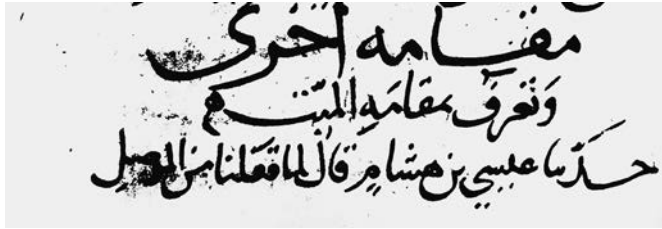 مقامه أخرى
وَتُعرفُ بمقامَهِ الميّت
حدّثنا عيسي بن هشامٍ قالَ لما قفلنا من الموصل